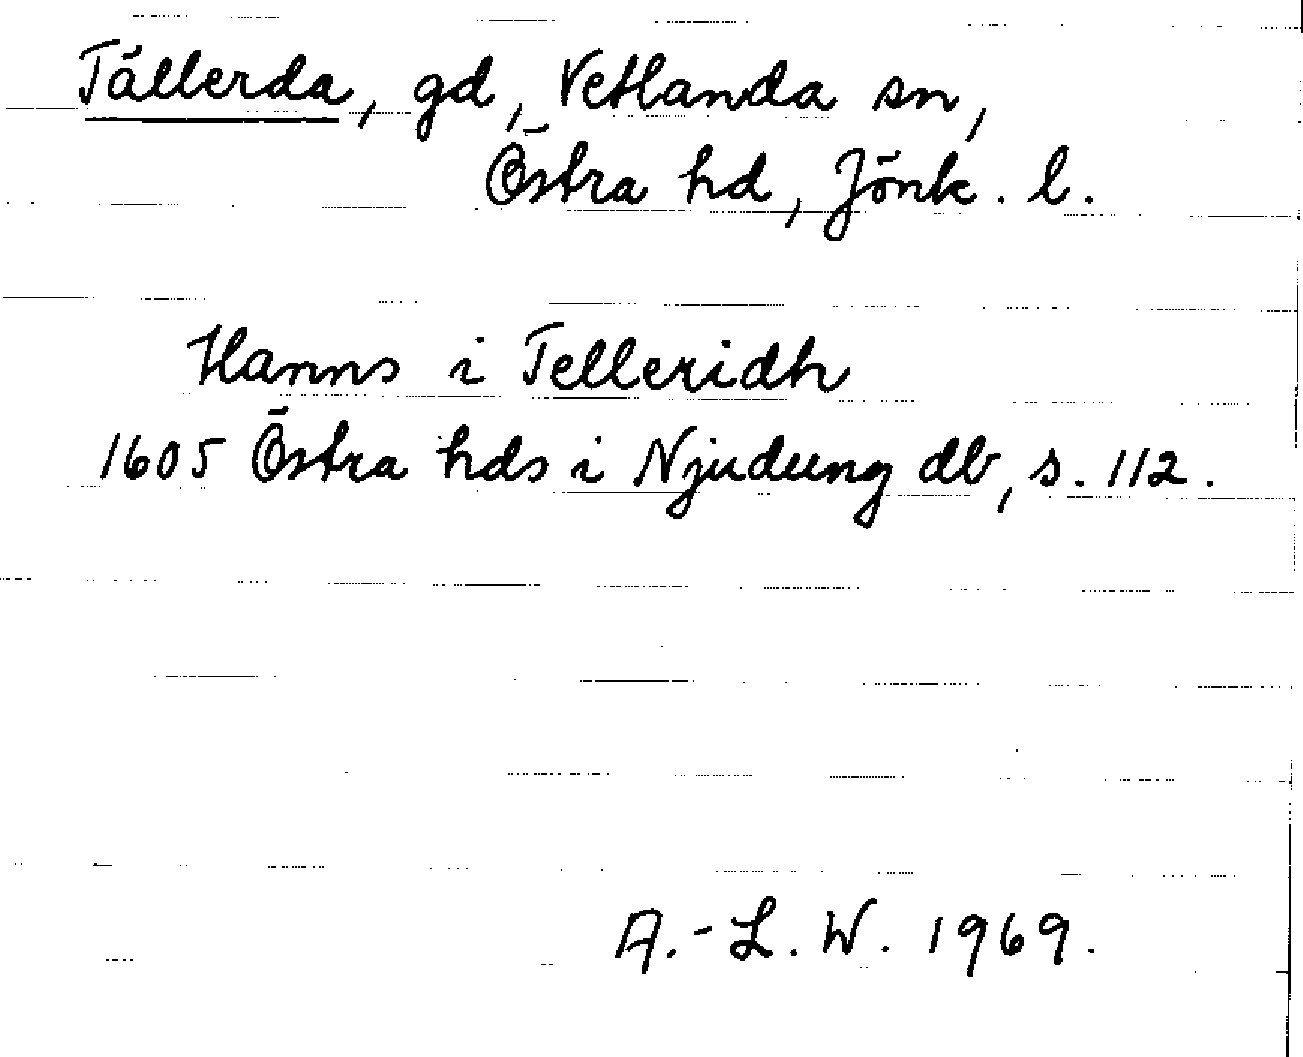 Tällerda, gd, Vetlanda sn,
Östra hd, Jönk. l.
Hanns i Telleridh
1605 Östra hds i Njudung db, s. 112.
A.-L. W. 1969.